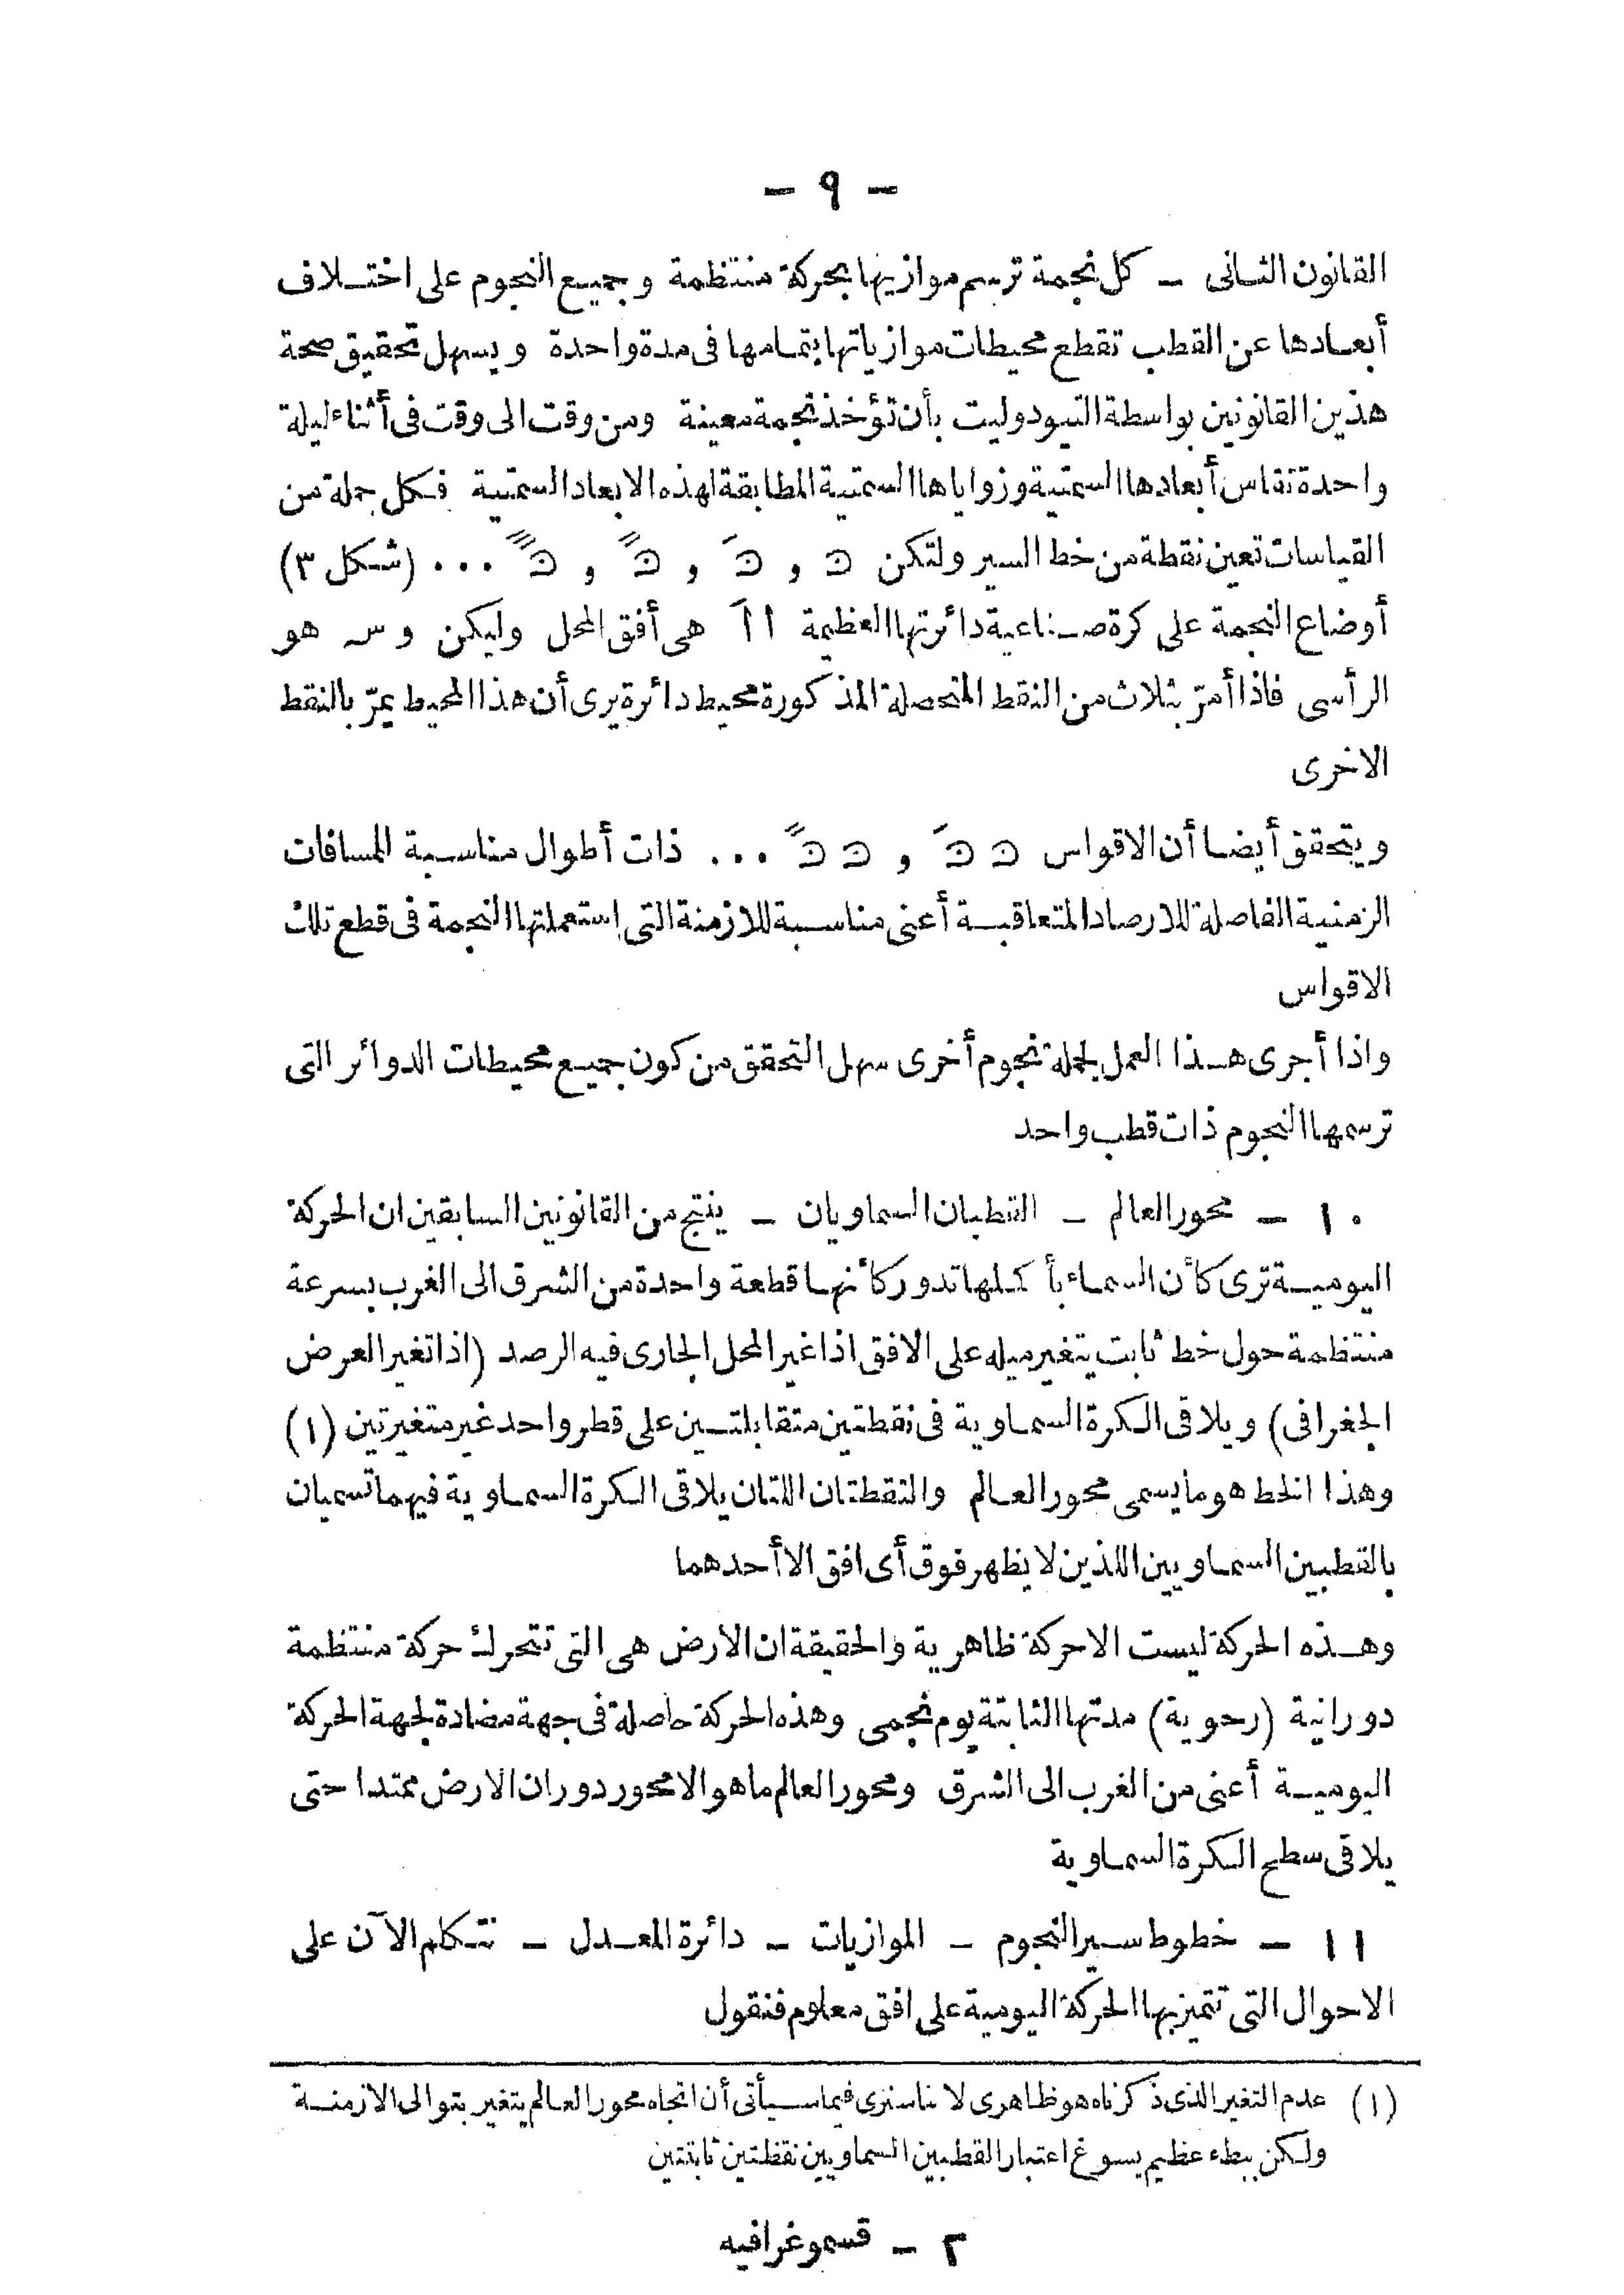 - ٩ -
القانون الثانى - كل نجمة ترسم موازيها بحركة منتظمة وجميع النجوم على اختلاف
أبعادها عن القطب تقطع محيطات موازياتها بتمامها فى مدة واحدة ويسهل تحقيق صحة
هذين القانونين بواسطة التيودوليت بأن تؤخذ نجمة معينة ومن وقت الى وقت فى أثناء ليلة
واحدة تقاس أبعادها السمتية وزواياها السمتية المطابقة لهذه الابعاد السمتية فكل جملة من
القياسات تعين نقطة من خط السير ولتكن  و  و  و  ... (شكل ٣)
أوضاع النجمة على كرة صناعية دائرتها العظيمة ا اَ هى أفق المحل وليكن و سـ هو
الرأسى فاذا أمرّ بثلاث من النقط المتحصلة المذكورة محيط دائرة يرى أن هذا المحيط يمرّ بالنقط
الاخرى
ويتحقق أيضا أن الاقواس  و  ... ذات أطوال مناسبة للمسافات
الزمنية الفاصلة للارصاد المتعاقبة أعنى مناسبة للازمنة التى استعملتها النجمة فى قطع تلك
الاقواس
واذا أجرى هذا العمل لجملة نجوم أخرى سهل التحقق من كون جميع محيطات الدوائر التى
ترسمها النجوم ذات قطب واحد
١٠ - محور العالم - القطبان السماويان - ينتج من القانونين السابقين ان الحركة
اليومية ترى كأن السماء بأكملها تدور كأنها قطعة واحدة من الشرق الى الغرب بسرعة
منتظمة حول خط ثابت يتغير ميله على الافق اذا غير المحل الجارى فيه الرصد (اذا تغير العرض
الجغرافى) ويلاقى الكرة السماوية فى نقطتين متقابلتين على قطر واحد غير متغيرتين (١)
وهذا الخط هو ما يسمى محور العالم والنقطتان اللتان يلاقى الكرة السماوية فيهما تسميان
بالقطبين السماويين اللذين لا يظهر فوق أى افق الا أحدهما
وهذه الحركة ليست الا حركة ظاهرية والحقيقة ان الارض هى التى تتحرك حركة منتظمة
دورانية (رحوية) مدتها الثابتة يوم نجمى وهذه الحركة حاصلة فى جهة مضادة لجهة الحركة
اليومية أعنى من الغرب الى الشرق ومحور العالم ما هو الا محور دوران الارض ممتدا حتى
يلاقى سطح الكرة السماوية
١١ - خطوط سير النجوم - الموازيات - دائرة المعدل - نتكلم الآن على
الاحوال التى تتميز بها الحركة اليومية على افق معلوم فنقول
(١) عدم التغير الذى ذكرناه هو ظاهرى لاننا سنرى فيما سيأتى أن اتجاه محور العالم يتغير بتوالى الازمنة
ولكن ببطء عظيم يسوغ اعتبار القطبين السماويين نقطتين ثابتتين
٢ - قسموغرافيه